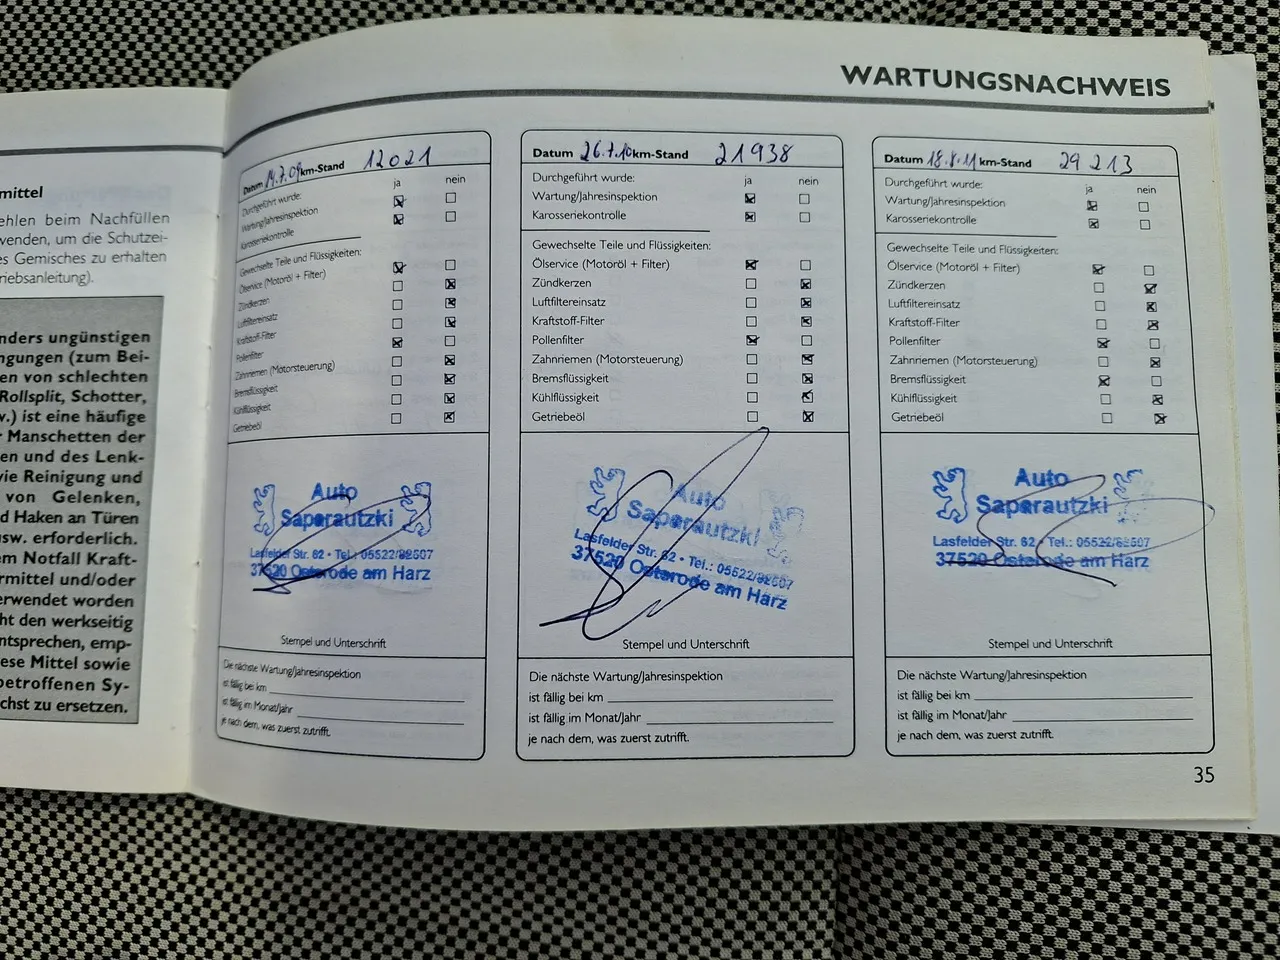 WARTUNGSNACHWEIS
mittel
ehlen beim Nachfüllen
wenden, um die Schutzei-
es Gemisches zu erhalten
riebsanleitung).
nders ungünstigen
ngungen (zum Bei-
en von schlechten
Rollsplit, Schotter,
v.) ist eine häufige
r Manschetten der
en und des Lenk-
wie Reinigung und
von Gelenken,
d Haken an Türen
usw. erforderlich.
em Notfall Kraft-
ermittel und/oder
erwendet worden
ht den werkseitig
entsprechen, emp-
ese Mittel sowie
betroffenen Sy-
chst zu ersetzen.
Datum 14.7.09 km-Stand 12021
ja nein
Durchgeführt wurde:
Wartung/Jahresinspektion
Karosseriekontrolle
Gewechselte Teile und Flüssigkeiten:
Ölservice (Motoröl + Filter)
Zündkerzen
Luftfiltereinsatz
Kraftstoff-Filter
Pollenfilter
Zahnriemen (Motorsteuerung)
Bremsflüssigkeit
Kühlflüssigkeit
Getriebeöl
Auto
Saparautzki
Lasfelder Str. 62 • Tel.: 05522/82607
37520 Osterode am Harz
Stempel und Unterschrift
Die nächste Wartung/Jahresinspektion
ist fällig bei km
ist fällig im Monat/Jahr
je nach dem, was zuerst zutrifft.
Datum 26.7.10 km-Stand 21938
Durchgeführt wurde: ja nein
Wartung/Jahresinspektion
Karosseriekontrolle
Gewechselte Teile und Flüssigkeiten:
Ölservice (Motoröl + Filter)
Zündkerzen
Luftfiltereinsatz
Kraftstoff-Filter
Pollenfilter
Zahnriemen (Motorsteuerung)
Bremsflüssigkeit
Kühlflüssigkeit
Getriebeöl
Auto
Saparautzki
Lasfelder Str. 62 • Tel.: 05522/82607
37520 Osterode am Harz
Stempel und Unterschrift
Die nächste Wartung/Jahresinspektion
ist fällig bei km
ist fällig im Monat/Jahr
je nach dem, was zuerst zutrifft.
Datum 18.8.11 km-Stand 29213
Durchgeführt wurde: ja nein
Wartung/Jahresinspektion
Karosseriekontrolle
Gewechselte Teile und Flüssigkeiten:
Ölservice (Motoröl + Filter)
Zündkerzen
Luftfiltereinsatz
Kraftstoff-Filter
Pollenfilter
Zahnriemen (Motorsteuerung)
Bremsflüssigkeit
Kühlflüssigkeit
Getriebeöl
Auto
Saparautzki
Lasfelder Str. 62 • Tel.: 05522/82607
37520 Osterode am Harz
Stempel und Unterschrift
Die nächste Wartung/Jahresinspektion
ist fällig bei km
ist fällig im Monat/Jahr
je nach dem, was zuerst zutrifft.
35